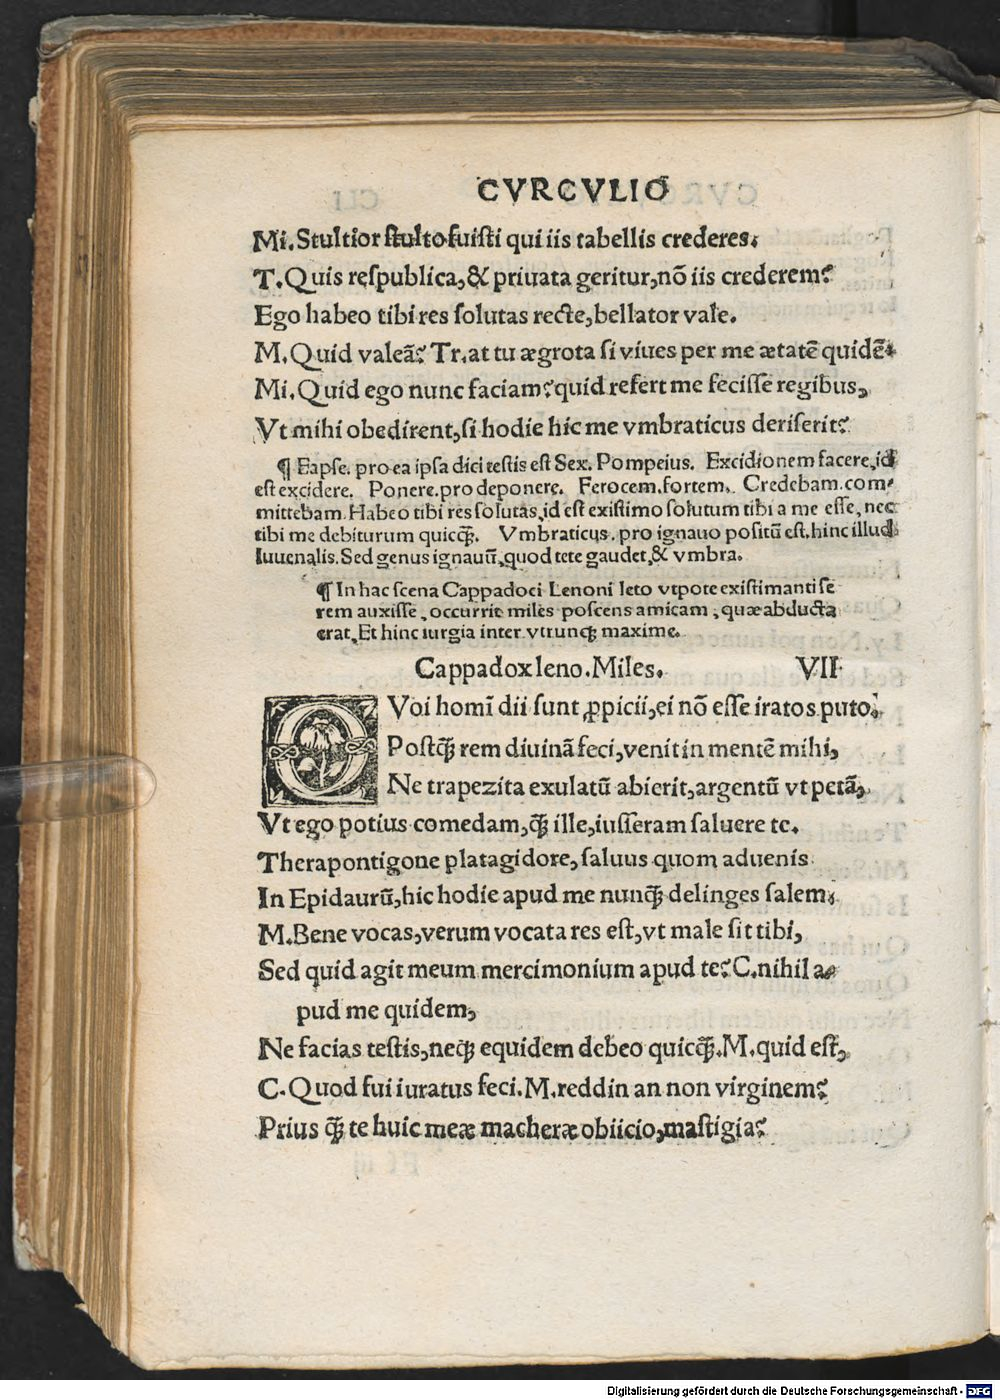 CVRCVLIO
Mi. Stultior stulto fuisti qui iis tabellis crederes.
T. Quis respublica, & priuata geritur, nō iis crederem?
Ego habeo tibi res solutas recte, bellator vale.
M. Quid valeā? Tr. at tu ægrota si viues per me ætatē quidē.
Mi. Quid ego nunc faciam? quid refert me fecisse regibus,
Vt mihi obedirent, si hodie hic me vmbraticus deriserit?
¶ Eapse. pro ea ipsa dici testis est Sex. Pompeius. Excidionem facere, id
est excidere. Ponere. pro deponere. Ferocem. fortem. Credebam. com-
mittebam. Habeo tibi res solutas, id est existimo solutum tibi a me esse, nec
tibi me debiturum quicq̄. Vmbraticus. pro ignauo positū est. hinc illud
Iuuenalis. Sed genus ignauū, quod tete gaudet, & vmbra.
¶ In hac scena Cappadoci Lenoni leto vtpote existimanti se
rem auxisse, occurrit miles poscens amicam, quæ abducta
erat. Et hinc iurgia inter vtrunq; maxime.
Cappadox leno. Miles. VII
QVoi homī dii sunt ꝓpicii, ei nō esse iratos puto.
Postq̄ rem diuinā feci, venit in mentē mihi,
Ne trapezita exulatū abierit, argentū vt petā,
Vt ego potius comedam, q̄ ille, iusseram saluere te.
Therapontigone platagidore, saluus quom aduenis
In Epidaurū, hic hodie apud me nunq̄ delinges salem.
M. Bene vocas, verum vocata res est, vt male sit tibi,
Sed quid agit meum mercimonium apud te? C. nihil a-
pud me quidem,
Ne facias testis, neq; equidem debeo quicq̄. M. quid est,
C. Quod fui iuratus feci. M. reddin an non virginem?
Prius q̄ te huic meæ macheræ obiicio, mastigia?
Digitalisierung gefördert durch die Deutsche Forschungsgemeinschaft - DFG